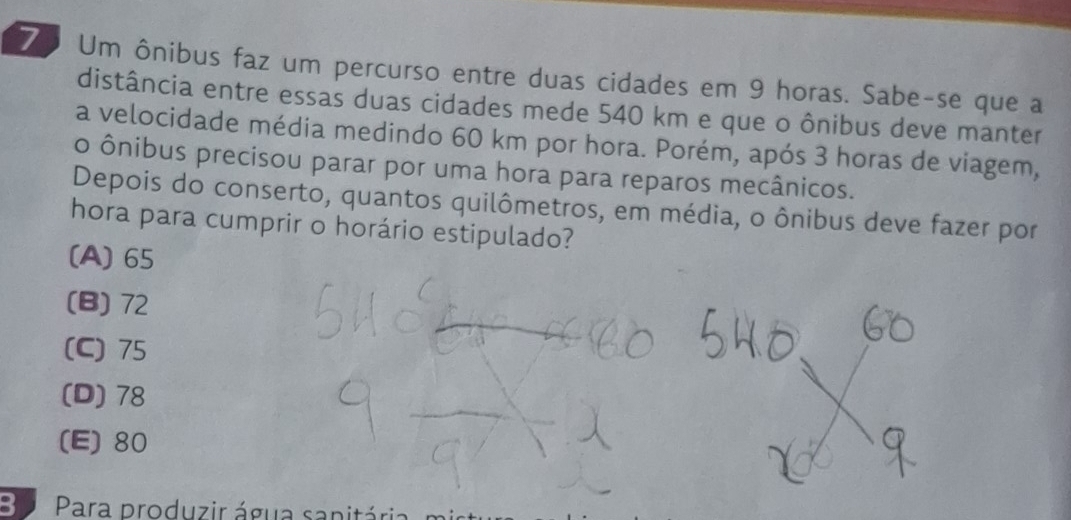 7 Um ônibus faz um percurso entre duas cidades em 9 horas. Sabe-se que a
distância entre essas duas cidades mede 540 km e que o ônibus deve manter
a velocidade média medindo 60 km por hora. Porém, após 3 horas de viagem,
o ônibus precisou parar por uma hora para reparos mecânicos.
Depois do conserto, quantos quilômetros, em média, o ônibus deve fazer por
hora para cumprir o horário estipulado?
(A) 65
(B) 72
(C) 75
(D) 78
(E) 80
540 60
9 x
9
540 60
x 9
8 Para produzir água sanitária